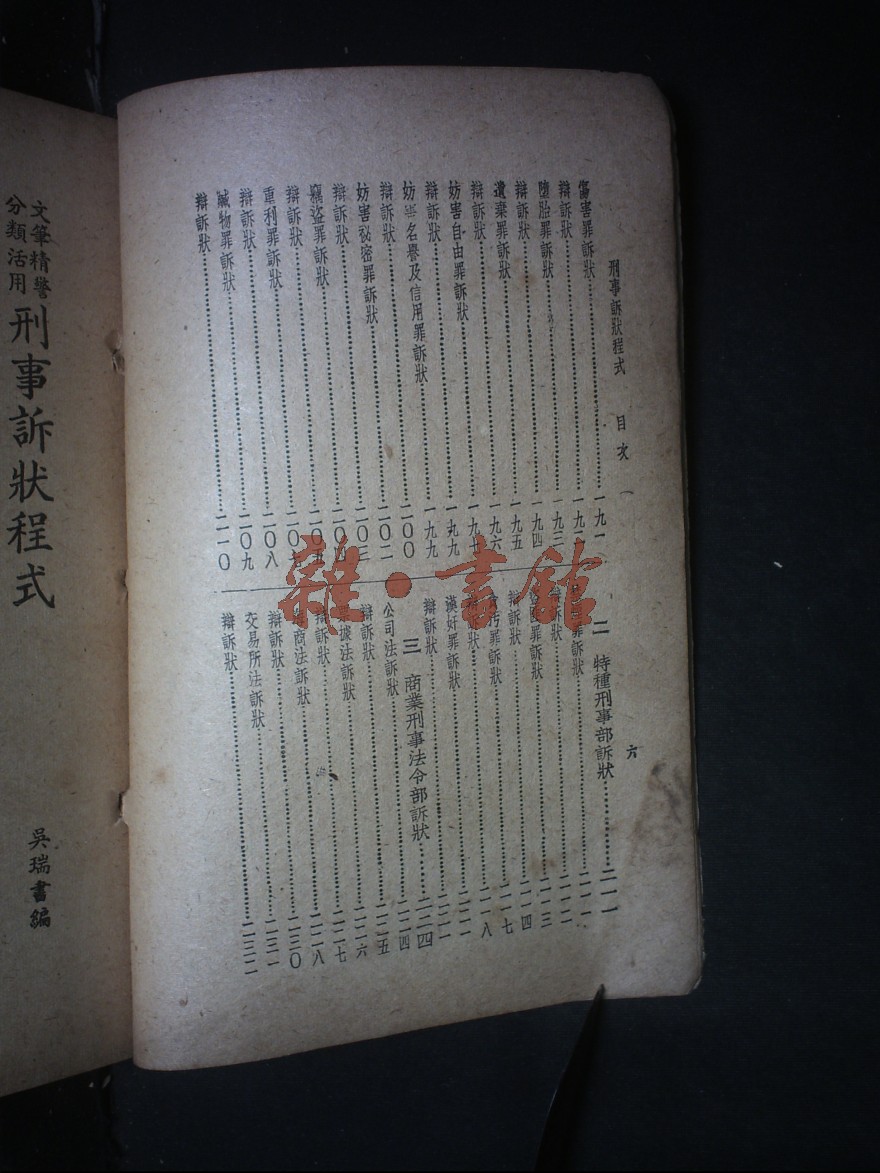 刑事訴狀程式 目次 六
傷害罪訴狀……一九一
辯訴狀……一九二
墮胎罪訴狀……一九三
辯訴狀……一九四
遺棄罪訴狀……一九五
辯訴狀……一九六
妨害自由罪訴狀……一九七
辯訴狀……一九九
妨害名譽及信用罪訴狀……一九九
辯訴狀……二〇〇
妨害祕密罪訴狀……二〇二
辯訴狀……二〇三
竊盜罪訴狀……二〇四
辯訴狀……二〇五
重利罪訴狀……二〇七
辯訴狀……二〇八
贓物罪訴狀……二〇九
辯訴狀……二一〇
二 特種刑事部訴狀……二一一
罪訴狀……二一一
辯訴狀……二一二
罪訴狀……二一三
辯訴狀……二一四
貪污罪訴狀……二一七
辯訴狀……二一八
漢奸罪訴狀……二二一
辯訴狀……二二二
三 商業刑事法令部訴狀……二二四
公司法訴狀……二二四
辯訴狀……二二五
票據法訴狀……二二六
辯訴狀……二二七
海商法訴狀……二二八
辯訴狀……二三〇
交易所法訴狀……二三一
辯訴狀……二三二
文筆精警
分類活用
刑事訴狀程式
吳瑞書編
雜·書館